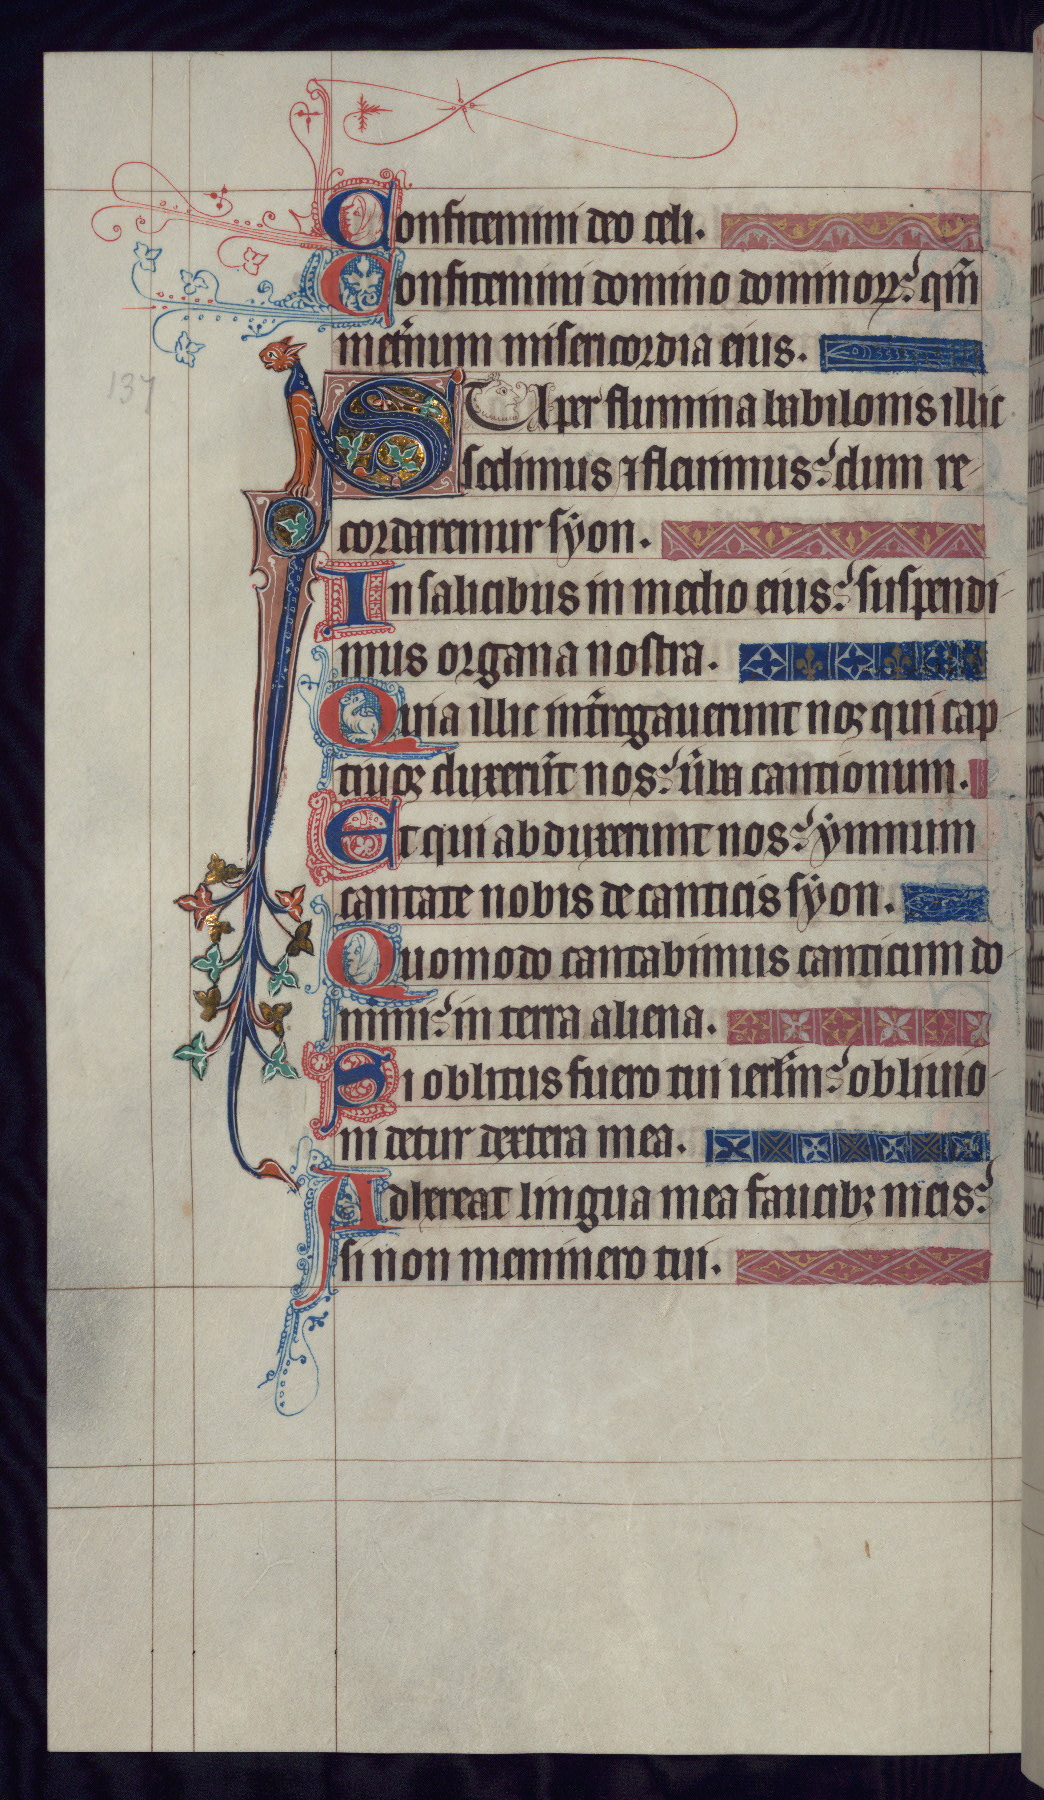 Confitemini deo celi.
Confitemini domino dominoꝝ: qm̄
inet̄num misericordia eius.
137
SUper flumina babilonis illic
sedimus ⁊ fleuimus: dum re-
cordaremur sẏon.
In salicibus in medio eius: suspendi-
mus organa nostra.
Quia illic int̄rogauerunt noꝫ qui cap-
tiuoꝫ duxerūt nos: u̅ba cantionum.
Et qui abduxerunt nos: ẏmnum
cantate nobis de canticis sẏon.
Quomodo cantabimus canticum do-
mini: in terra aliena.
Si oblitus fuero tui ierl̄m: obliuio-
ni detur dextera mea.
Adhereat lingua mea faucibꝫ meis:
si non meminero tui.